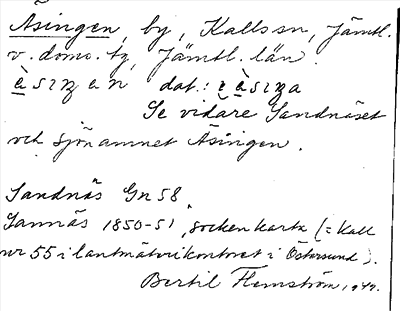 Åsingen, by, Kalls sn, Jämtl.
v. doms. tg, Jämtl. län.
dat.:
Se vidare Sandnäset
och sjönamnet Åsingen.
Sandnäs Gn 58.
Sannäs 1850-51, sockenkarta (= Kall
nr 55 i lantmäterikontoret i Östersund).
Bertil Flemström, 1949.